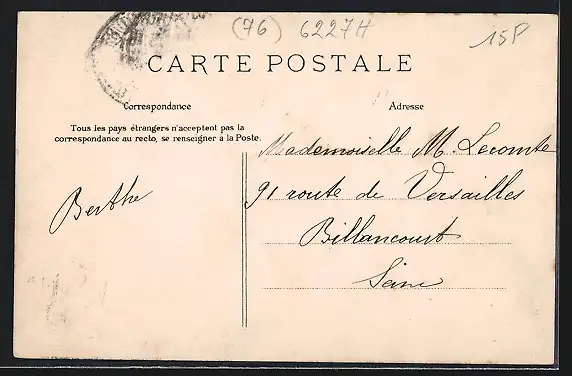 (76) 6227H
15P
CARTE POSTALE
Correspondance
Adresse
Tous les pays étrangers n'acceptent pas la
correspondance au recto, se renseigner à la Poste.
Mademoiselle M. Lecomte
91 route de Versailles
Billancourt
Seine
Berthe